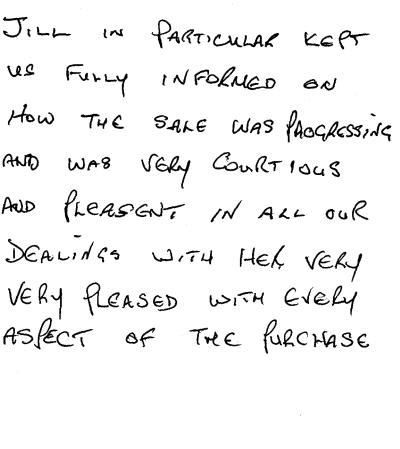 JILL IN PARTICULAR KEPT
US FULLY INFORMED ON
HOW THE SALE WAS PROGRESSING
AND WAS VERY COURTIOUS
AND PLEASENT IN ALL OUR
DEALINGS WITH HER, VERY
VERY PLEASED WITH EVERY
ASPECT OF THE PURCHASE